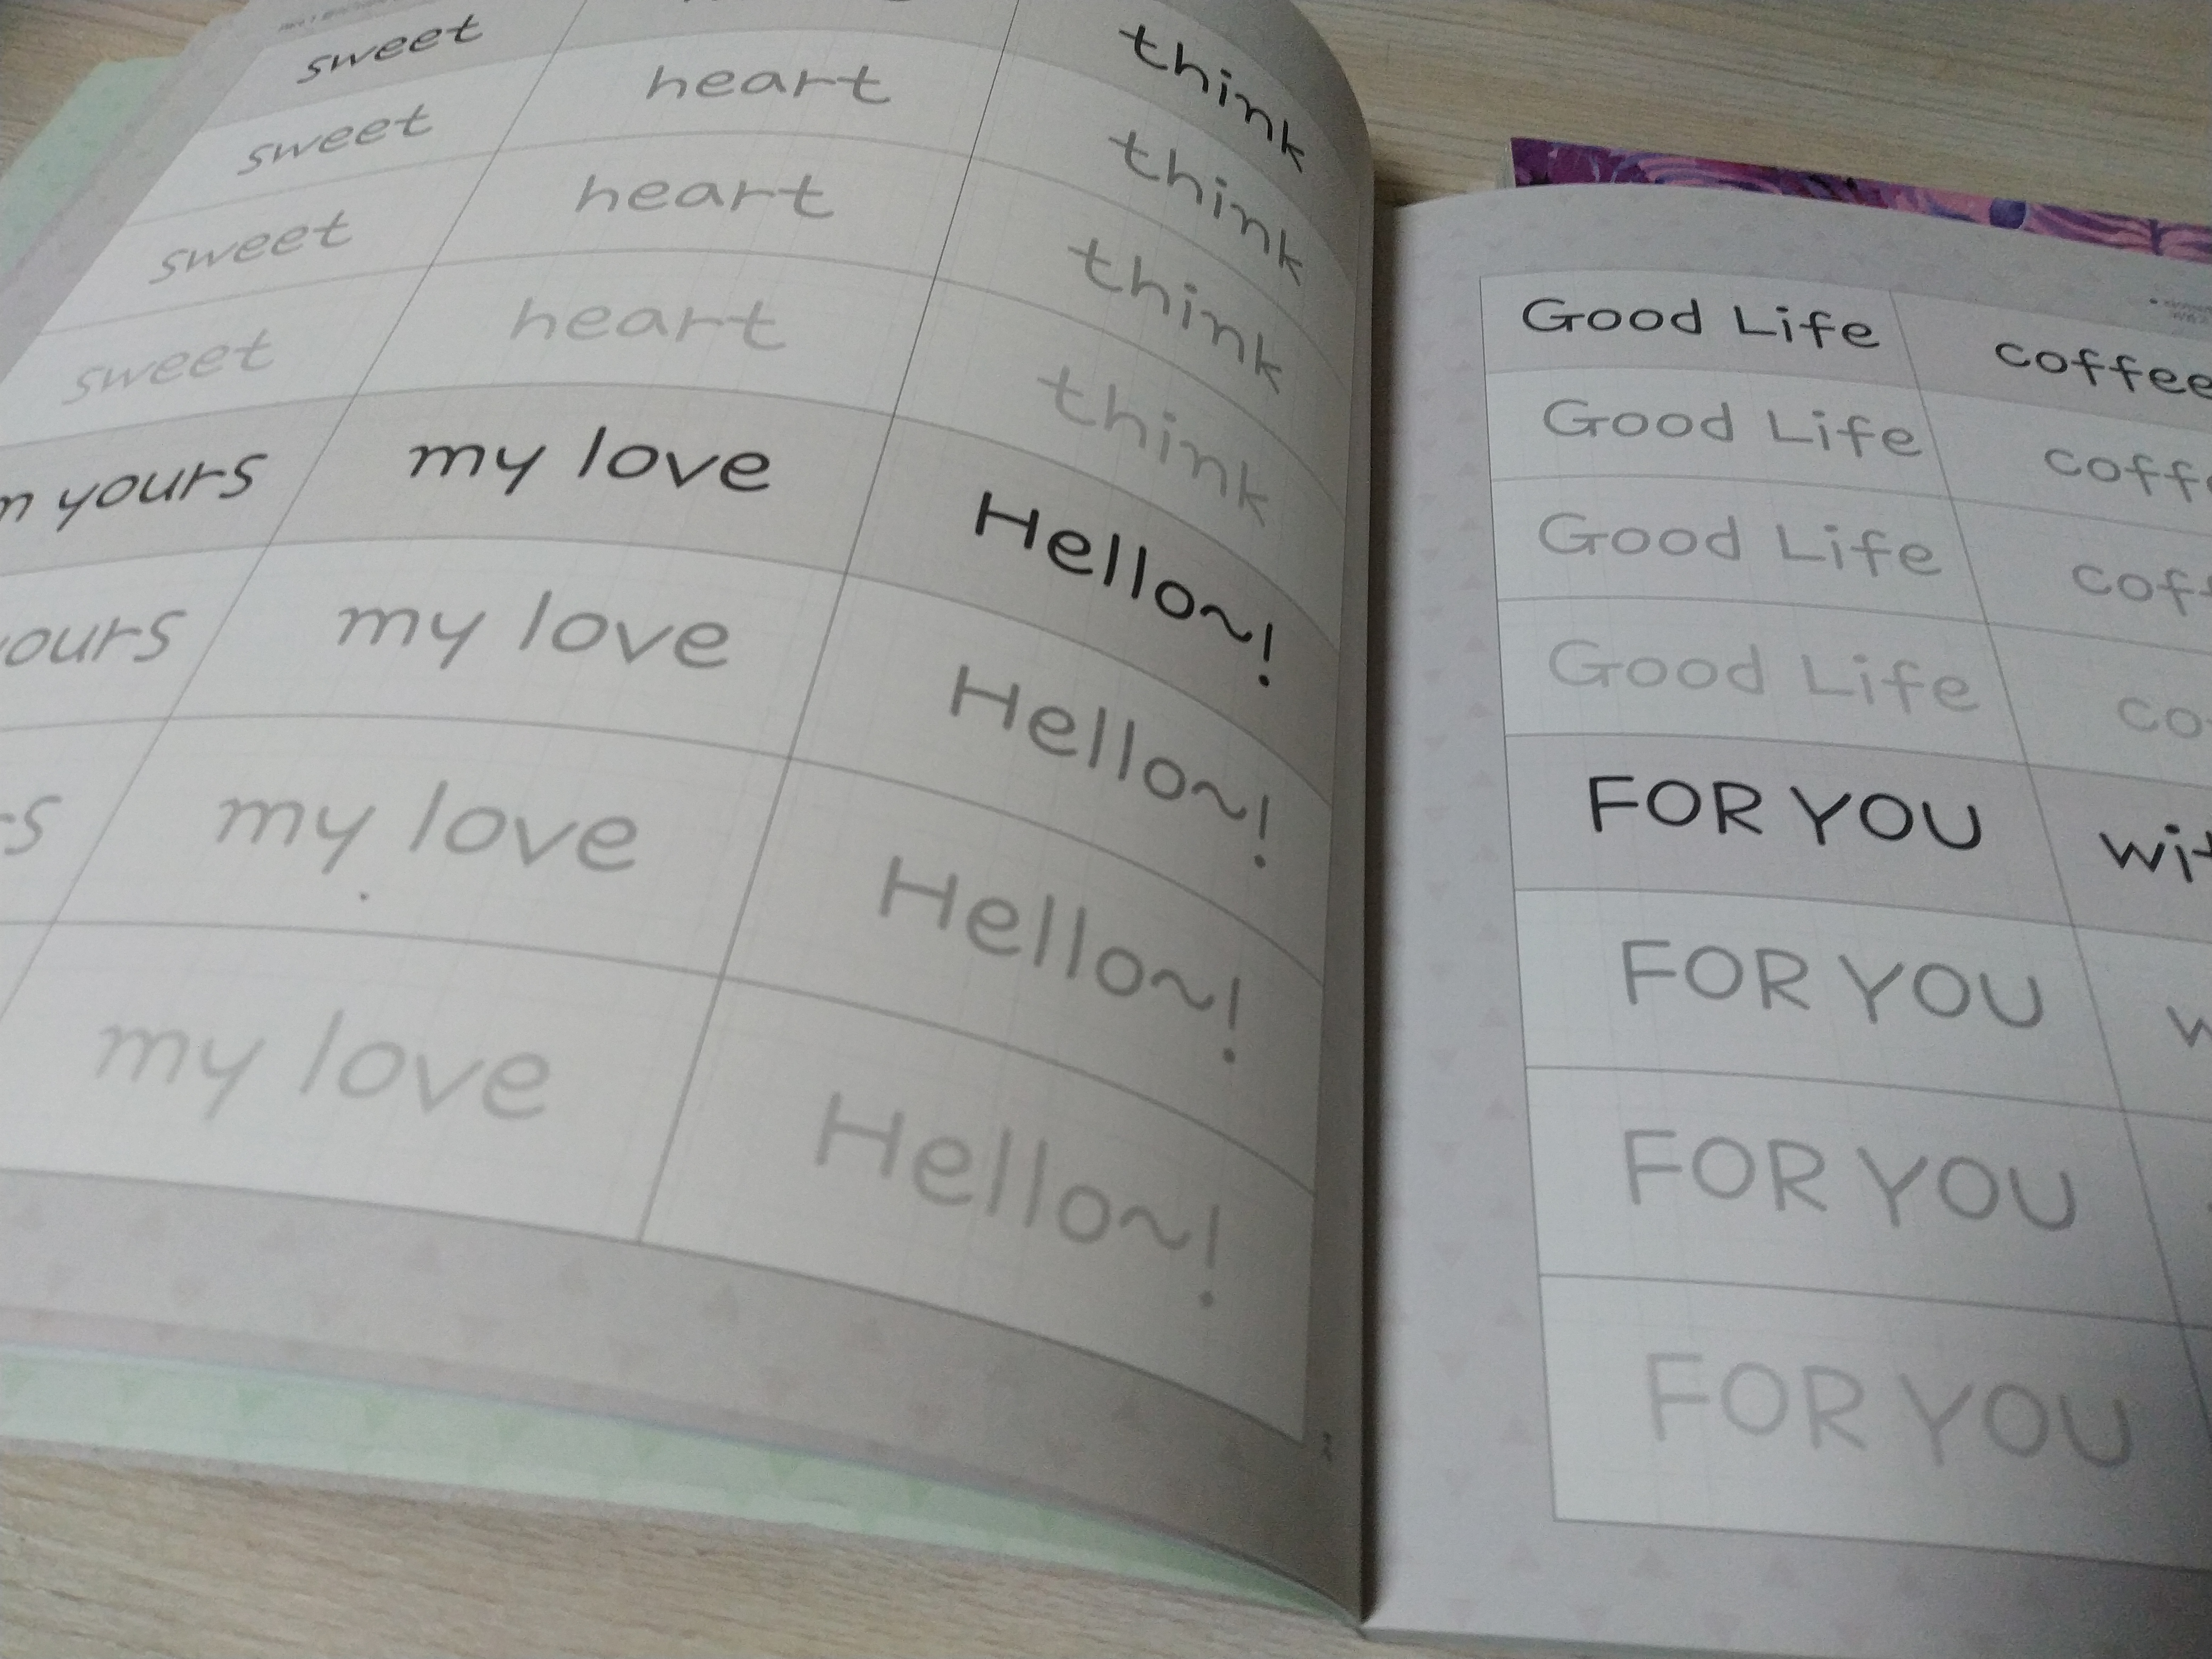 sweet think
sweet heart think
sweet heart think
sweet heart think
yours my love Hello~!
my love Hello~!
my love Hello~!
my love Hello~!
Good Life coffee
Good Life
Good Life
Good Life
FOR YOU
FOR YOU
FOR YOU
FOR YOU